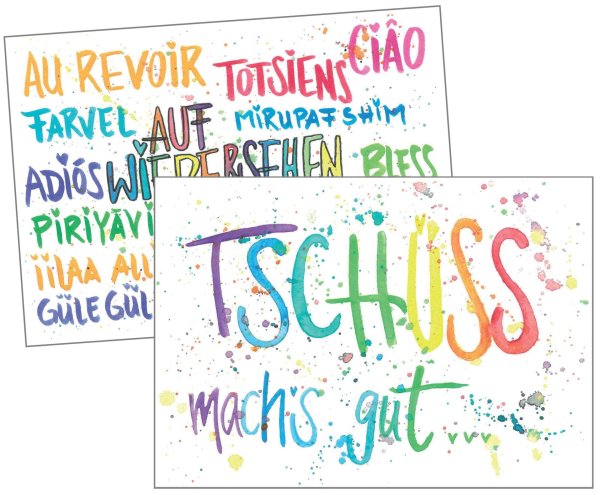 AU REVOIR TOTSIENS CIÂO
FARVEL AUF MIRUPAFSHIM
ADIÓS WIEDERSEHEN BLESS
PIRIYĀVI
IILAA ALL
GÜLE GÜL
TSCHÜSS
mach's gut...